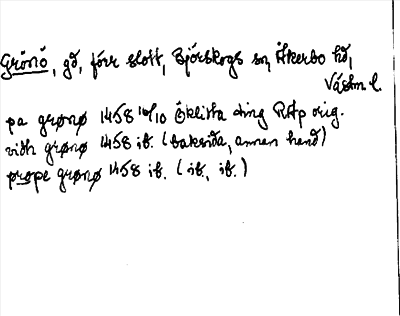 Grönö, gd, förr slott, Björskogs sn, Åkerbo hd,
Västm l.
pa grønø 1458 10/10 Öklista ting RAp orig.
vidh grønø 1458 ib. (baksida, annan hand)
prope grønø 1458 ib. (ib., ib.)